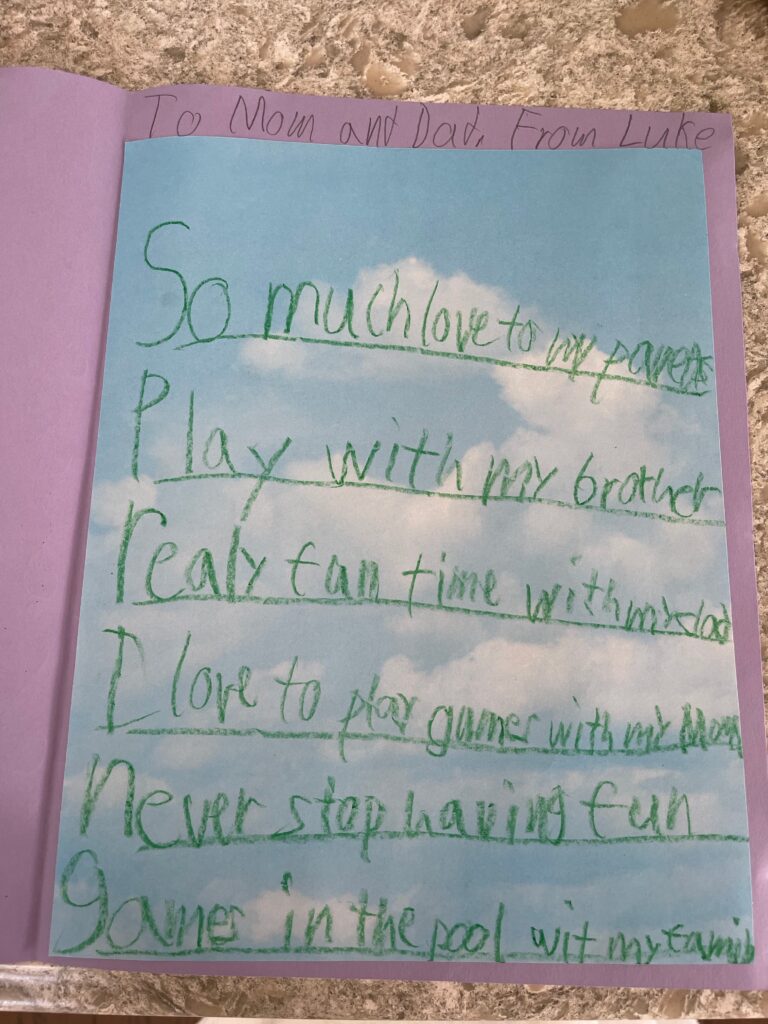 To Mom and Dad. From Luke
So much love to my parents
Play with my brother
realy fun time with my dad
I love to play games with my Mom
never stop having fun
games in the pool wit my family